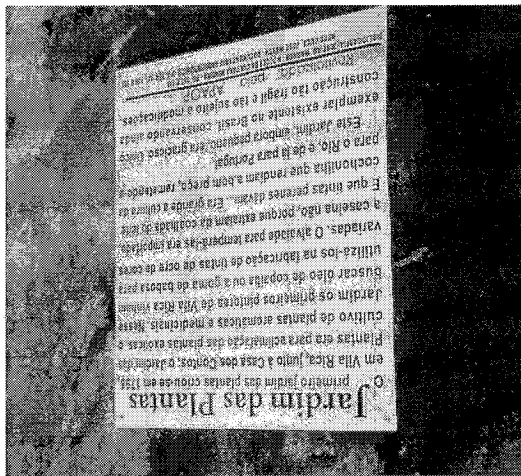 Jardim das Plantas
O primeiro jardim das plantas criou-se em
em Vila Rica, junto à Casa dos Contos, o Jardim das
Plantas era para aclimatação das plantas exóticas, o
cultivo de plantas aromáticas e medicinais. Nesse
Jardim os primeiros pintores de Vila Rica vinham
buscar óleo de copaíba ou a goma de babosa para
utilizá-los na fabricação de tintas de ocre de cores
variadas. O alvaiade para temperá-las era importado,
a caseína não, porque extraíam da coalhada do leite.
E que tintas perenes Era grande a cultura da
cochonilha que rendiam a bom preço,
para o Rio, e de lá para Portugal.
Este Jardim, embora pequeno, era Único
exemplar existente no Brasil, conservando ainda
construção tão frágil e tão sujeito a modificações.
APAOP